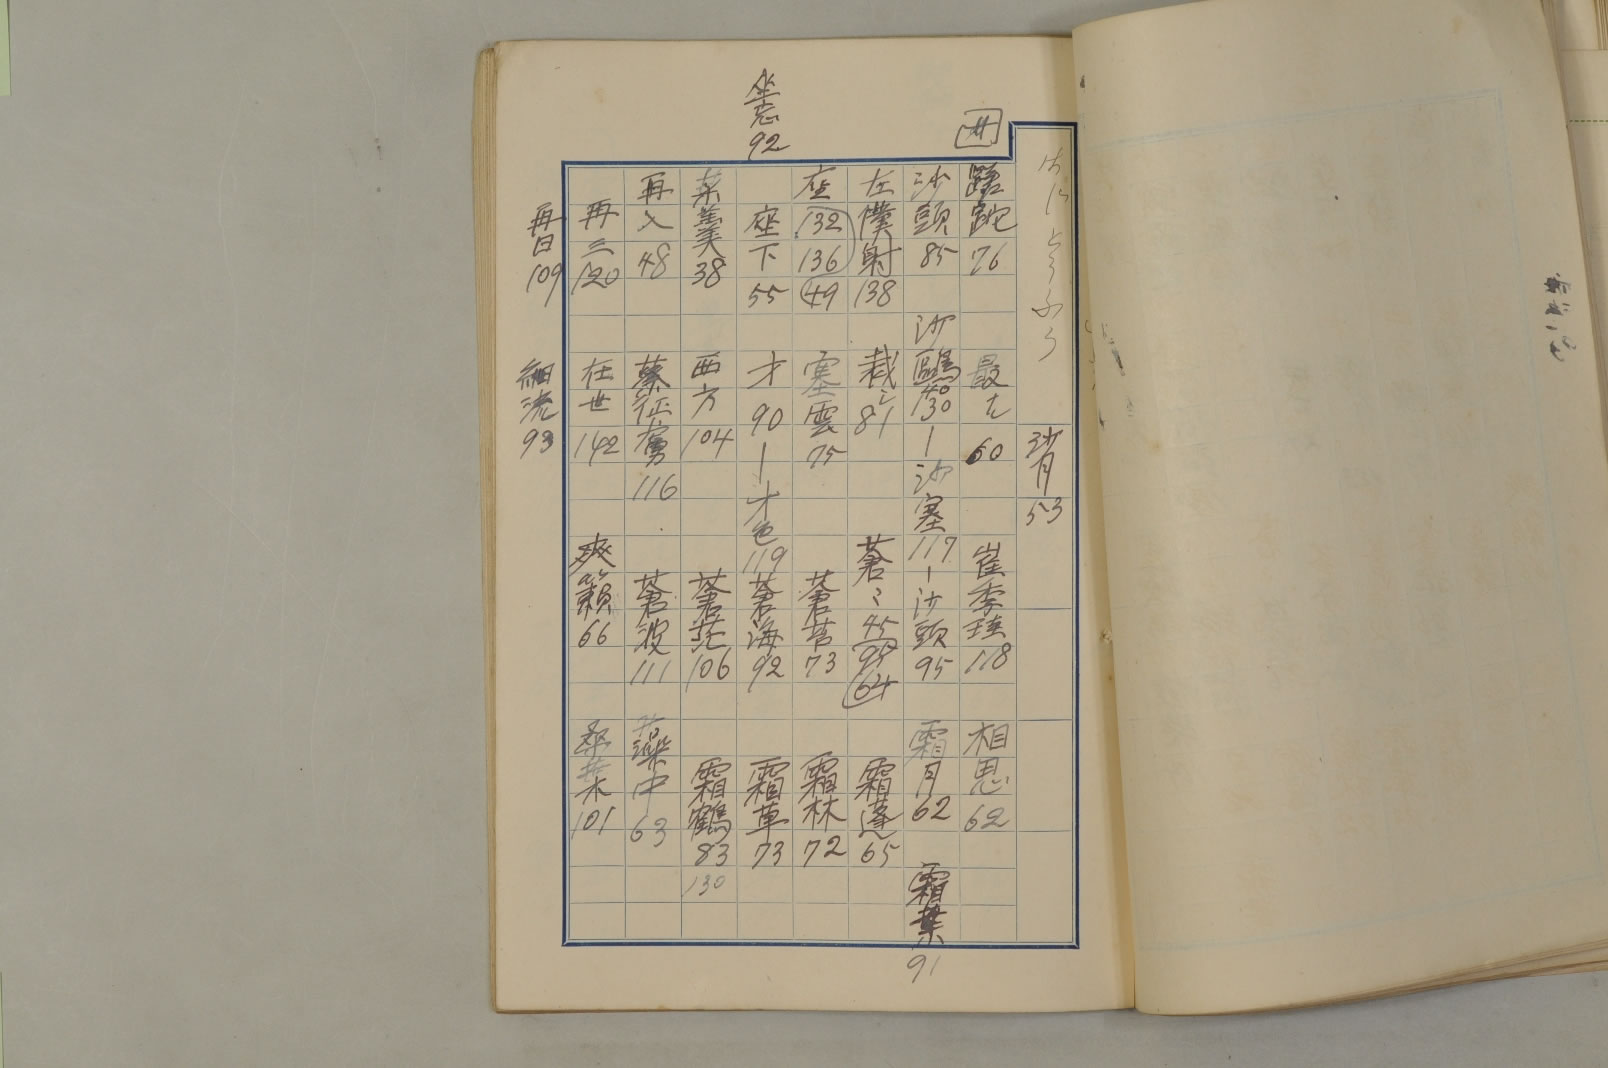 沙月 53
蹉跎 76
最尤 60
崔季珪 118
相思 62
沙頭 85
沙鷗 130 ー 沙塞 117 ー 沙頭 95
霜月 62
霜葉 91
左僕射 138
裁 81
蒼〻 45 64
霜蓬 65
座 132 136 49
塞雲 75
蒼苔 73
霜林 72
坐忘 92
座下 55
才 90 ー 才色 119
蒼海 92
霜草 73
菜羹 38
西方 104
蒼茫 106
霜鶴 83 130
再入 48
蔡征虜 116
蒼波 111
叢中 63
再三 120
在世 142
爽籟 66
桑葉 101
再日 109
細流 93